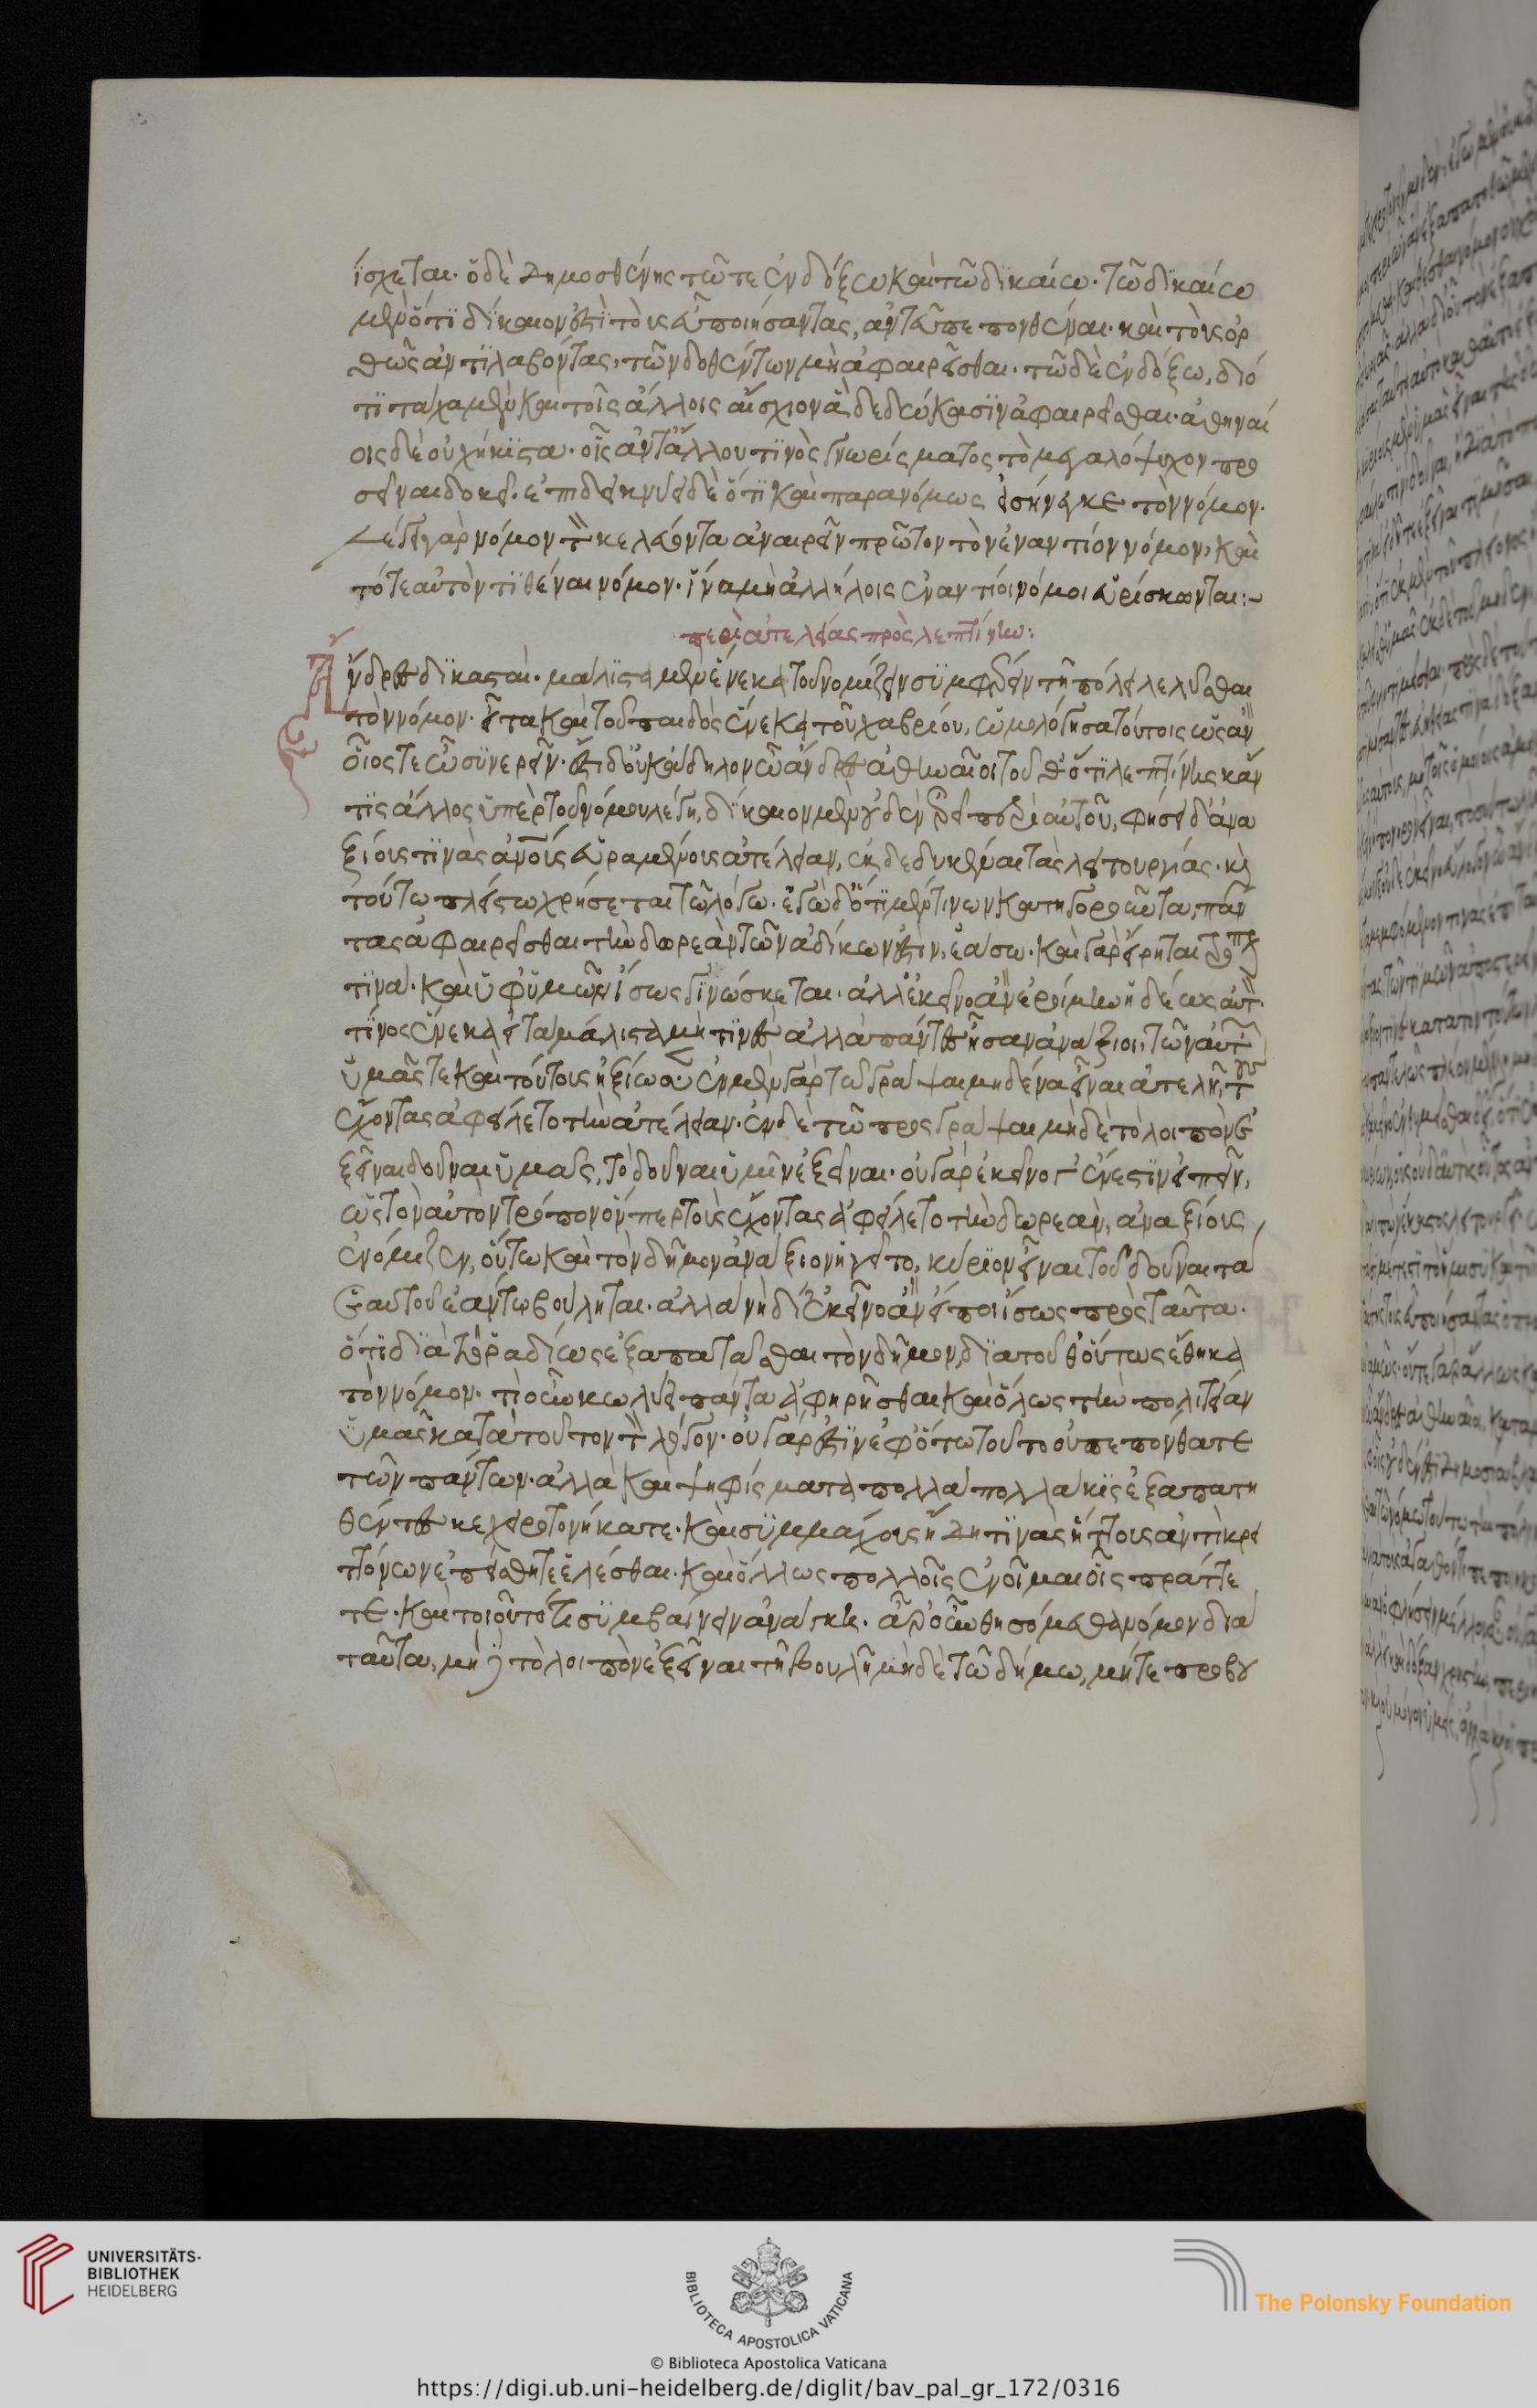 ΐσχεται· ὁ δὲ Δημοσθένης τῶ τε ἐνδόξω καὶ τῶ δικαίω· τῶ δικαίω
μὲν ὅτι δίκαιον ἐστὶ τοὺς εὖ ποιήσαντας, ἀντευπεπονθέναι· καὶ τοὺς ὀρ
θῶς ἀντιλαβόντας, τῶν δοθέντων μὴ ἀφαιρεῖσθαι· τῶ δὲ ἐνδόξω, διό
τι τάχα μὲν καὶ τοῖς ἄλλοις αἴσχιον ἃ δεδώκασιν ἀφαιρεῖσθαι· ἀθηναί
οις δὲ οὐχ ἥκιστα· οἷς ἀντ' ἄλλου τινὸς γνωρίσματος τὸ μεγαλόψυχον προ
σεῖναι δοκεῖ· ἐπιδείκνυσι δὲ ὅτι καὶ παρανόμως εἰσήνεγκε τὸν νόμον·
λέγει γὰρ νόμον τὸν κελεύοντα ἀναιρεῖν πρῶτον τὸν ἐναντίον νόμον, καὶ
τότε αὐτὸν τιθέναι νόμον· ἵνα μὴ ἀλλήλοις ἐναντίοι νόμοι εὑρίσκωνται:~
περὶ ἀτελείας πρὸς λεπτίνην:
Ἄνδρες δικασταί· μάλιστα μὲν εἵνεκα τοῦ νομίζειν συμφέρειν τῆ πόλει λελύσθαι
τὸν νόμον· εἶτα καὶ τοῦ παιδὸς εἵνεκα τοῦ χαβρίου, ὡμολόγησα τούτοις ὡς ἂν
οἷός τε ὦ συνερεῖν· ἔστι δ' οὐκ ἄδηλον ὦ ἄνδρες ἀθηναῖοι τοῦθ' ὅτι λεπτίνης κἄν
τις ἄλλος ὑπὲρ τοῦ νόμου λέγη, δίκαιον μὲν οὐδὲν ἐρεῖ περὶ αὐτοῦ, φήσει δ' ἀνα
ξίους τινὰς ἀνθρώπους εὑραμένους ἀτέλειαν, ἐκδεδυκέναι τὰς λειτουργίας· καὶ
τούτω πλείστω χρήσεται τῶ λόγω· ἐγὼ δ' ὅτι μὲν τινῶν κατηγοροῦντα, πάν
τας ἀφαιρεῖσθαι τὴν δωρεὰν τῶν ἀδίκων ἐστὶν, ἐάσω· καὶ γὰρ εἴρηται τρόπον
τινὰ· καὶ ὑφ' ὑμῶν ἴσως γινώσκεται· ἀλλ' ἐκεῖνο ἂν ἐροίμην ἡδέως αὐτὸν·
τίνος εἵνεκα εἰ τὰ μάλιστα μὴ τινὲς ἀλλὰ πάντες ἦσαν ἀνάξιοι, τῶν αὐτῶν
ὑμᾶς τε καὶ τούτους ἠξίωσεν· ἐν μὲν γὰρ τῶ γράψαι μηδένα εἶναι ἀτελῆ, τοὺς
ἔχοντας ἀφείλετο τὴν ἀτέλειαν· ἐν δὲ τῶ προσγράψαι μηδὲ τὸ λοιπὸν ἐ
ξεῖναι δοῦναι ὑμᾶς, τὸ δοῦναι ὑμῖν ἐξεῖναι· οὐ γὰρ ἐκεῖνό γ' ἔνεστιν εἰπεῖν,
ὡς τὸν αὐτὸν τρόπον ὅνπερ τοὺς ἔχοντας ἀφείλετο τὴν δωρεὰν, ἀναξίους
ἐνόμιζεν, οὕτω καὶ τὸν δῆμον ἀνάξιον ἡγεῖτο, κύριον εἶναι τοῦ δοῦναι τὰ
ἑαυτοῦ ἐάν τω βούληται· ἀλλὰ νὴ δί' ἐκεῖνο ἂν εἴποι ἴσως πρὸς ταῦτα·
ὅτι διὰ τὸ ῥαδίως ἐξαπατᾶσθαι τὸν δῆμον, διὰ τοῦθ' οὕτως ἔθηκα
τὸν νόμον· τί οὖν κωλύει πάντα ἀφηρῆσθαι καὶ ὅλως τὴν πολιτείαν
ὑμᾶς κατὰ τοῦτον τὸν λόγον· οὐ γὰρ ἔστιν ἐφ' ὅτω τοῦτο οὐ πεπόνθατε
τῶν πάντων· ἀλλὰ καὶ ψηφίσματα πολλὰ πολλάκις ἐξαπατη
θέντες κεχειροτονήκατε· καὶ συμμάχους ἤδη τινὰς ἥττους ἀντὶ κρει
ττόνων ἐπείσθητε ἑλέσθαι· καὶ ὅλως πολλοῖς ἐν οἶμαι οἷς πράττε
τε· καὶ τοιοῦτό τι συμβαίνειν ἀνάγκη· ἆρ' οὖν θησόμεθα νόμον διὰ
ταῦτα, μὴ τὸ λοιπὸν ἐξεῖναι τῆ βουλῆ μηδὲ τῶ δήμω, μήτε προβου
UNIVERSITÄTS-
BIBLIOTHEK
HEIDELBERG
BIBLIOTECA APOSTOLICA VATICANA
The Polonsky Foundation
© Biblioteca Apostolica Vaticana
https://digi.ub.uni-heidelberg.de/diglit/bav_pal_gr_172/0316